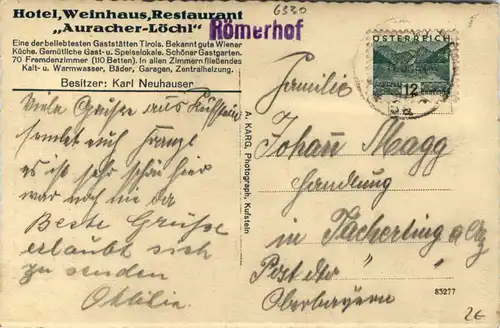 Hotel, Weinhaus, Restaurant
„Auracher-Löchl"
Eine der beliebtesten Gaststätten Tirols. Bekannt gute Wiener
Küche. Gemütliche Gast- u. Speiselokale. Schöner Gastgarten.
70 Fremdenzimmer (110 Betten). In allen Zimmern fließendes
Kalt- u. Warmwasser, Bäder, Garagen, Zentralheizung.
Besitzer: Karl Neuhauser
6330
Römerhof
ÖSTERREICH
12
GROSCHEN
Viele Grüsse aus Kufstein
sendet euch Franzl
es ist sehr schön hier
war noch nie da
Beste Grüße
erlaubt sich
zu senden
Ottilie
A. KARG, Photograph, Kufstein
Familie
Johann Magg
Handlung
in Tacherting a/Alz
Post dto
Oberbayern
83277
2€